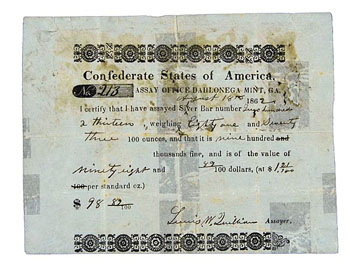 Confederate States of America,
No. 213 ASSAY OFFICE DAHLONEGA MINT, GA.
August 18th 1862
I certify that I have assayed Silver Bar number Two hundred
& thirteen, weighing Eighty one and Seventy
three 100 ounces, and that it is nine hundred and
thousands fier, and is of the value of
ninety eight and 89/100 dollars, (at $ 1 21/100
100 per standard oz.)
$ 98 89/100 Lewis W. Quillian Assayer.